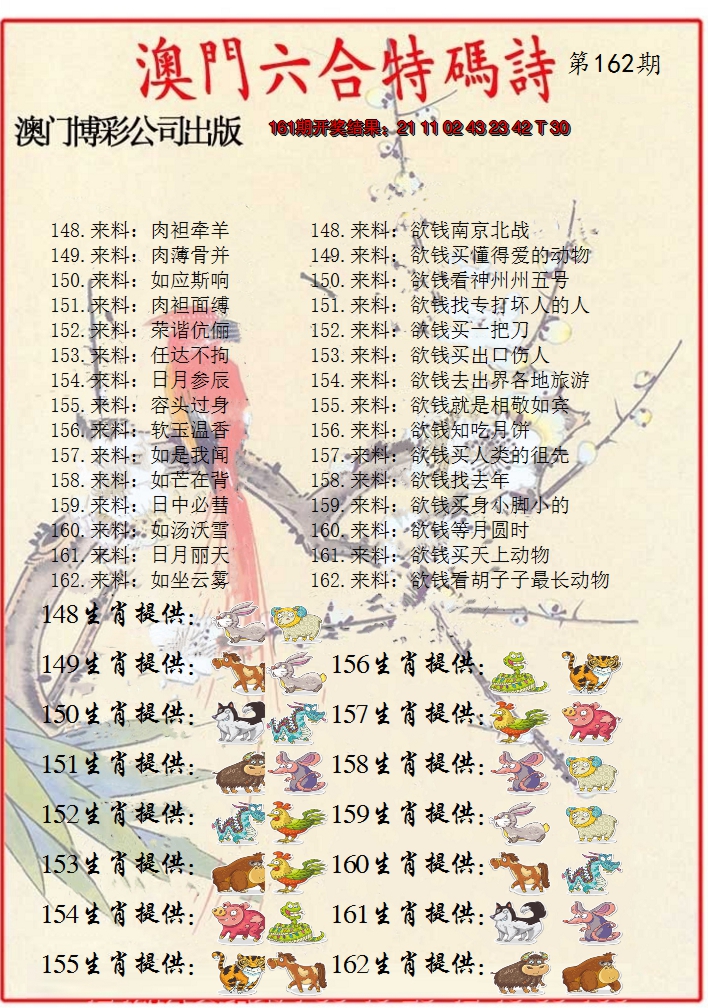 澳門六合特碼詩 第162期
澳门博彩公司出版 161期开奖结果：21 11 02 43 23 42 T 30
148.来料：肉袒牵羊 148.来料：欲钱南京北战
149.来料：肉薄骨并 149.来料：欲钱买懂得爱的动物
150.来料：如应斯响 150.来料：欲钱看神州州五号
151.来料：肉袒面缚 151.来料：欲钱找专打坏人的人
152.来料：荣谐伉俪 152.来料：欲钱买一把刀
153.来料：任达不拘 153.来料：欲钱买出口伤人
154.来料：日月参辰 154.来料：欲钱去出界各地旅游
155.来料：容头过身 155.来料：欲钱就是相敬如宾
156.来料：软玉温香 156.来料：欲钱知吃月饼
157.来料：如是我闻 157.来料：欲钱买人类的徂先
158.来料：如芒在背 158.来料：欲钱找去年
159.来料：日中必彗 159.来料：欲钱买身小脚小的
160.来料：如汤沃雪 160.来料：欲钱等月圆时
161.来料：日月丽天 161.来料：欲钱买天上动物
162.来料：如坐云雾 162.来料：欲钱看胡子子最长动物
148生肖提供：
149生肖提供： 156生肖提供：
150生肖提供： 157生肖提供：
151生肖提供： 158生肖提供：
152生肖提供： 159生肖提供：
153生肖提供： 160生肖提供：
154生肖提供： 161生肖提供：
155生肖提供： 162生肖提供：